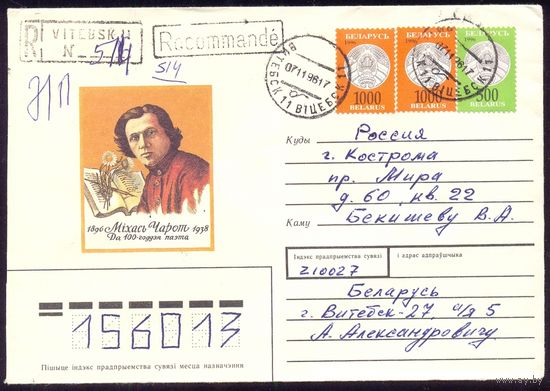 R VITEBSK 11
N- 514
Recommandé
514
ВИТЕБСК 11 ВІЦЕБСК
07119617
БЕЛАРУСЬ
1996
1000
BELARUS
БЕЛАРУСЬ
1996
1000
BELARUS
БЕЛАРУСЬ
500
BELARUS
1896 Міхась Чарот 1938
Да 100-годдзя паэта
Куды Россия
г. Кострома
пр. Мира
д. 60, кв. 22
Каму Бекишеву В.А.
Індэкс прадпрыемства сувязі і адрас адпраўшчыка
210027
Беларусь
г. Витебск-27, а/я 5
А. Александровичу
156013
Пішыце індэкс прадпрыемства сувязі месца назначэння
www.ay.by